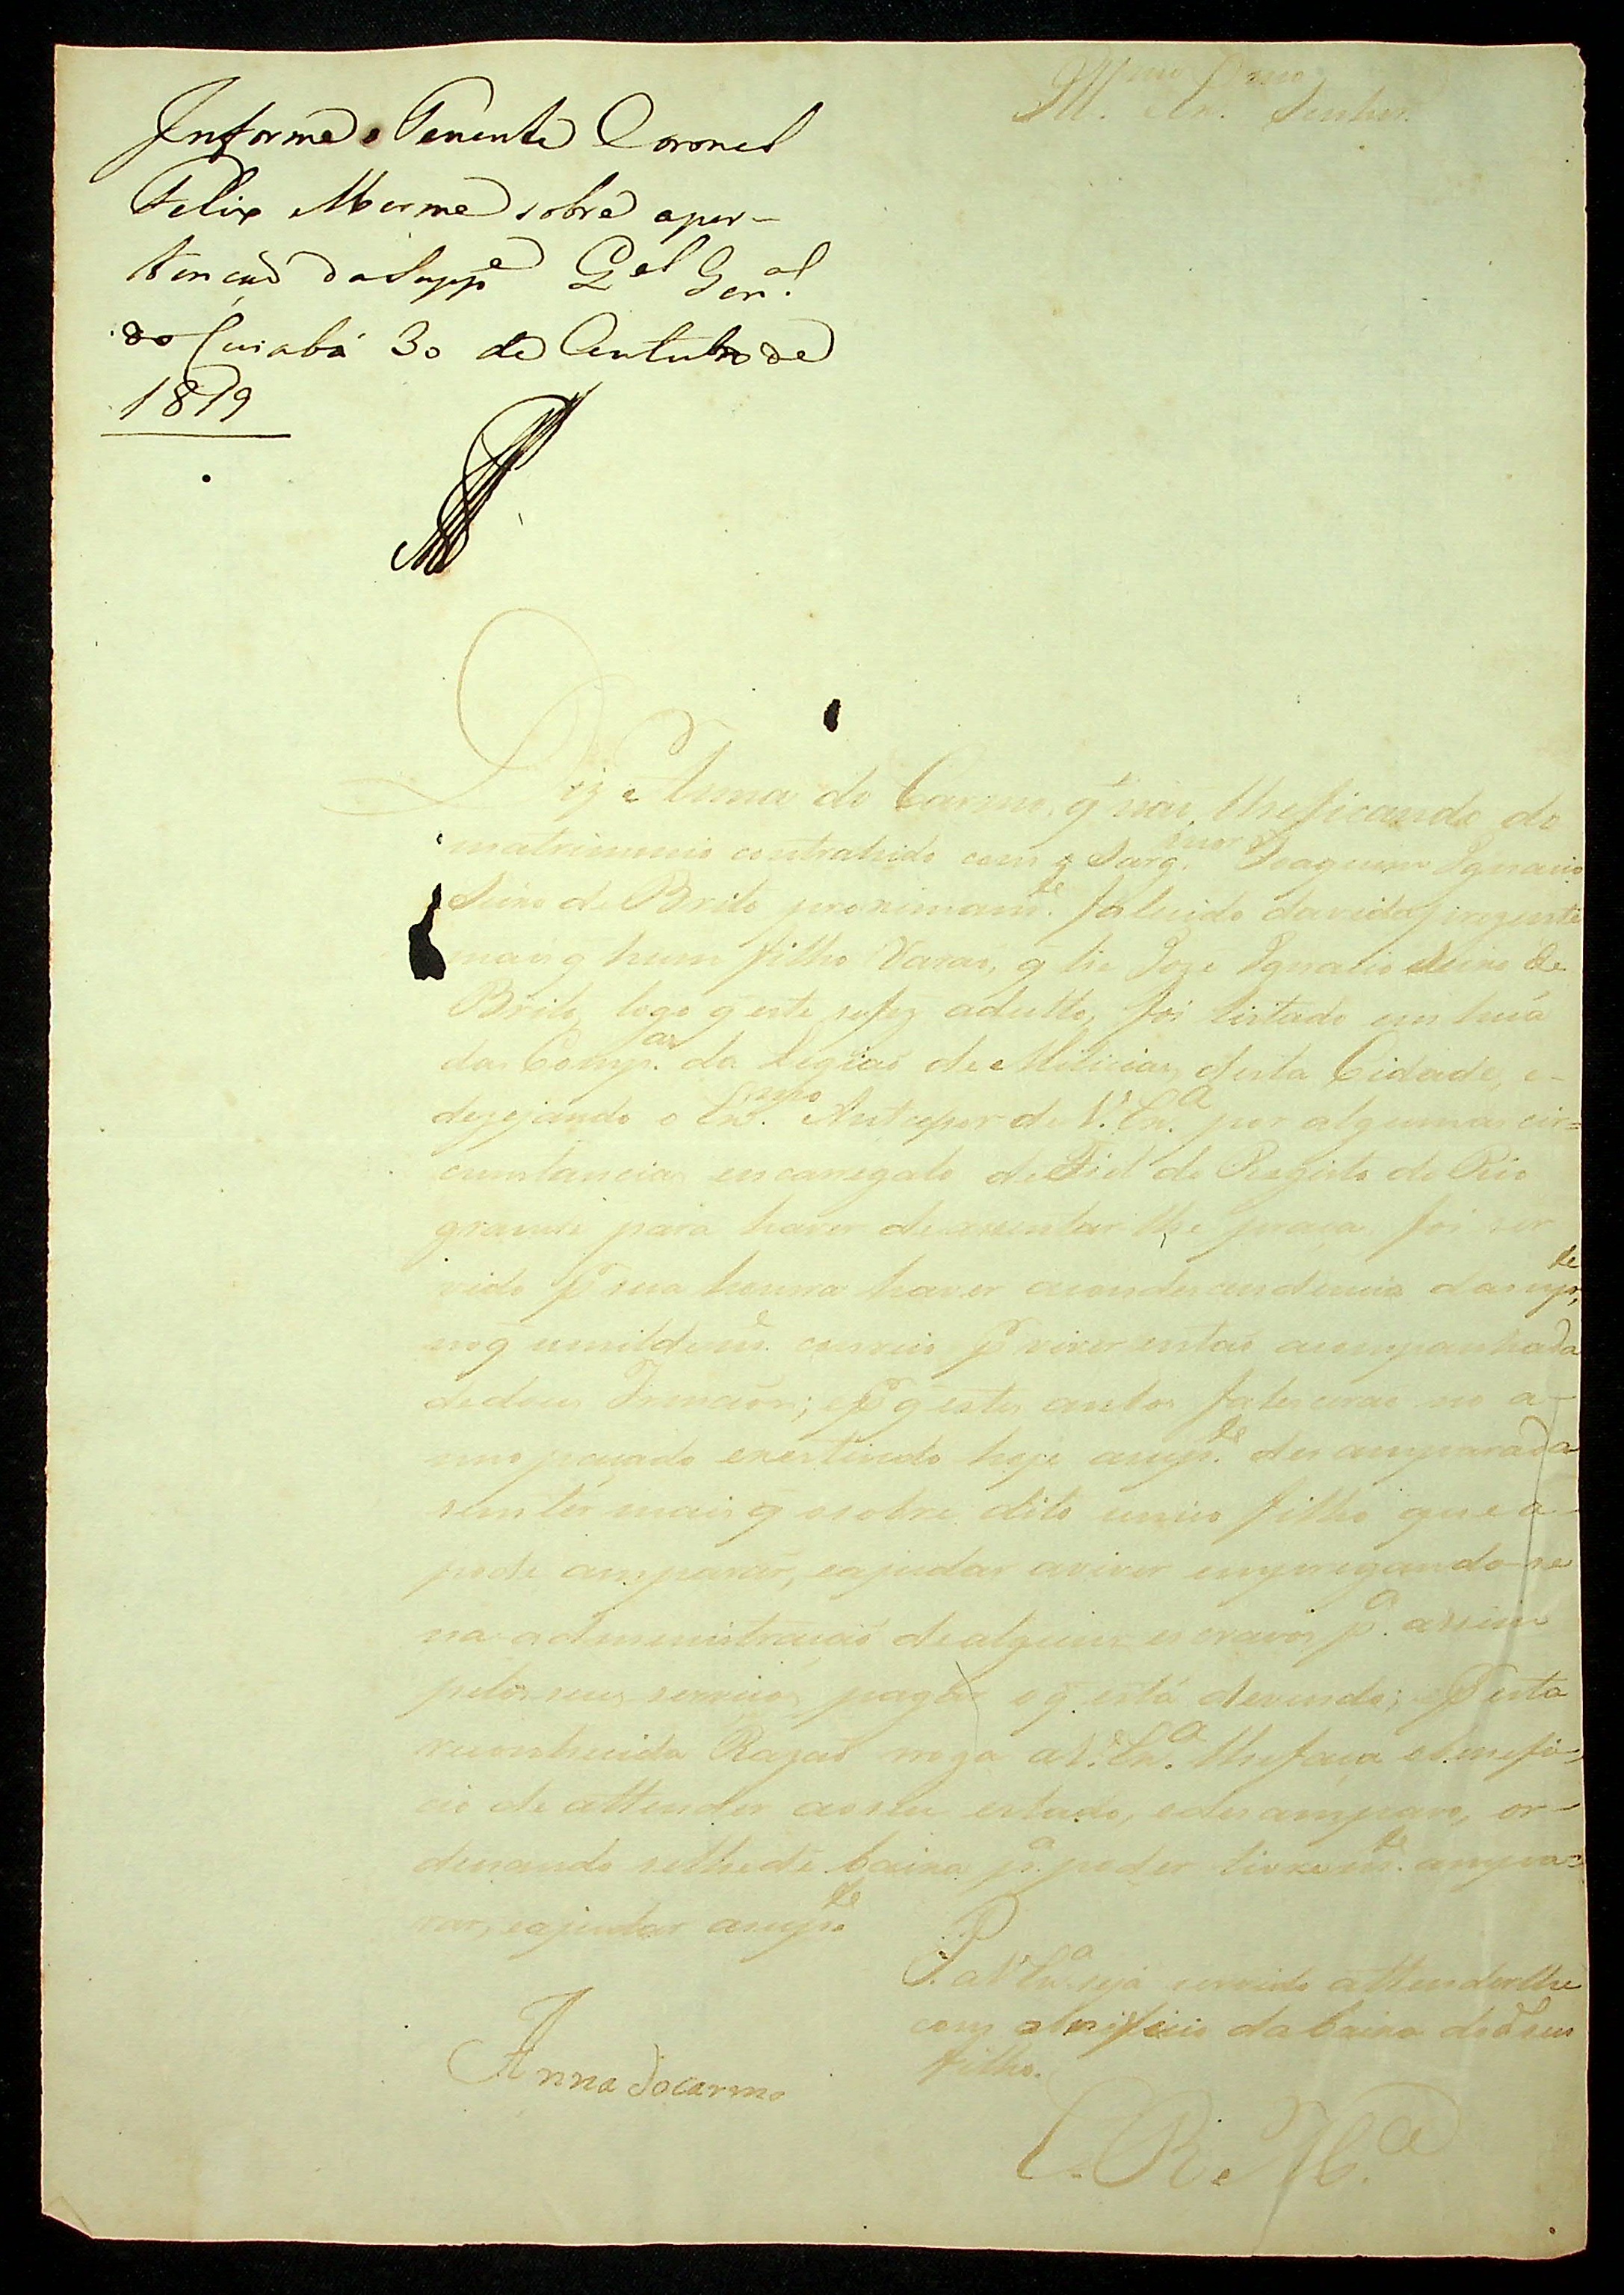 Informe o Tenente Coronel
Felix Merme sobre aper-
tencaõ da Supp.e Q.el Gen.al
do Cuiabá 30 de Outubro de
1819
Ill.mo Ex.mo Senhor.
Diz Anna do Carmo, q̃ naõ lhe ficando do
matrimonio contrahido com o Sarg. mor Joaquim Ignacio
de Brito proximam.te falecido da vida prezente
mais q̃ hum filho Varaõ, q̃ he Joze Ignacio de
Brito, logo q̃ este se fez adulto, foi listado em huã
das Comp.as da Legiaõ de Milicias desta Cidade, e
dezejando o Ex.mo Antecessor de V. Ex.a por algumas cir=
cunstancias encarregalo de Fiel do Registo do Rio
grande para haver de assentar lhe praça foi ser
vido p̃ sua honra haver a condescendencia da sup.te,
no q̃ umildem.e conveio p̃ viver entaõ acompanhada
de dous Irmaõs; e p̃ q̃ estes ambos faleceraõ no a-
nno passado existindo hoje a sup.te desamparada
sem ter mais q̃ o sobre dito unico filho que a
pode amparar, e ajudar a viver empregando-se
na administraçaõ de alguns escravos p.a assim
pelos seus serviços pagar o q̃ está devendo; e p̃ esta
reconhecida Razaõ roga a V. Ex.a lhe faça o benefi-
cio de attender ao seu estado, e desamparo, or-
denando se lhe dê baixa p.a poder livrem.te ampa=
rar, e ajudar a sup.te
P. a V. Ex.a seja servido attender lhe
com o beneficio da baixa do d.o seu
filho.
Anna do carmo
E. R. M.ce